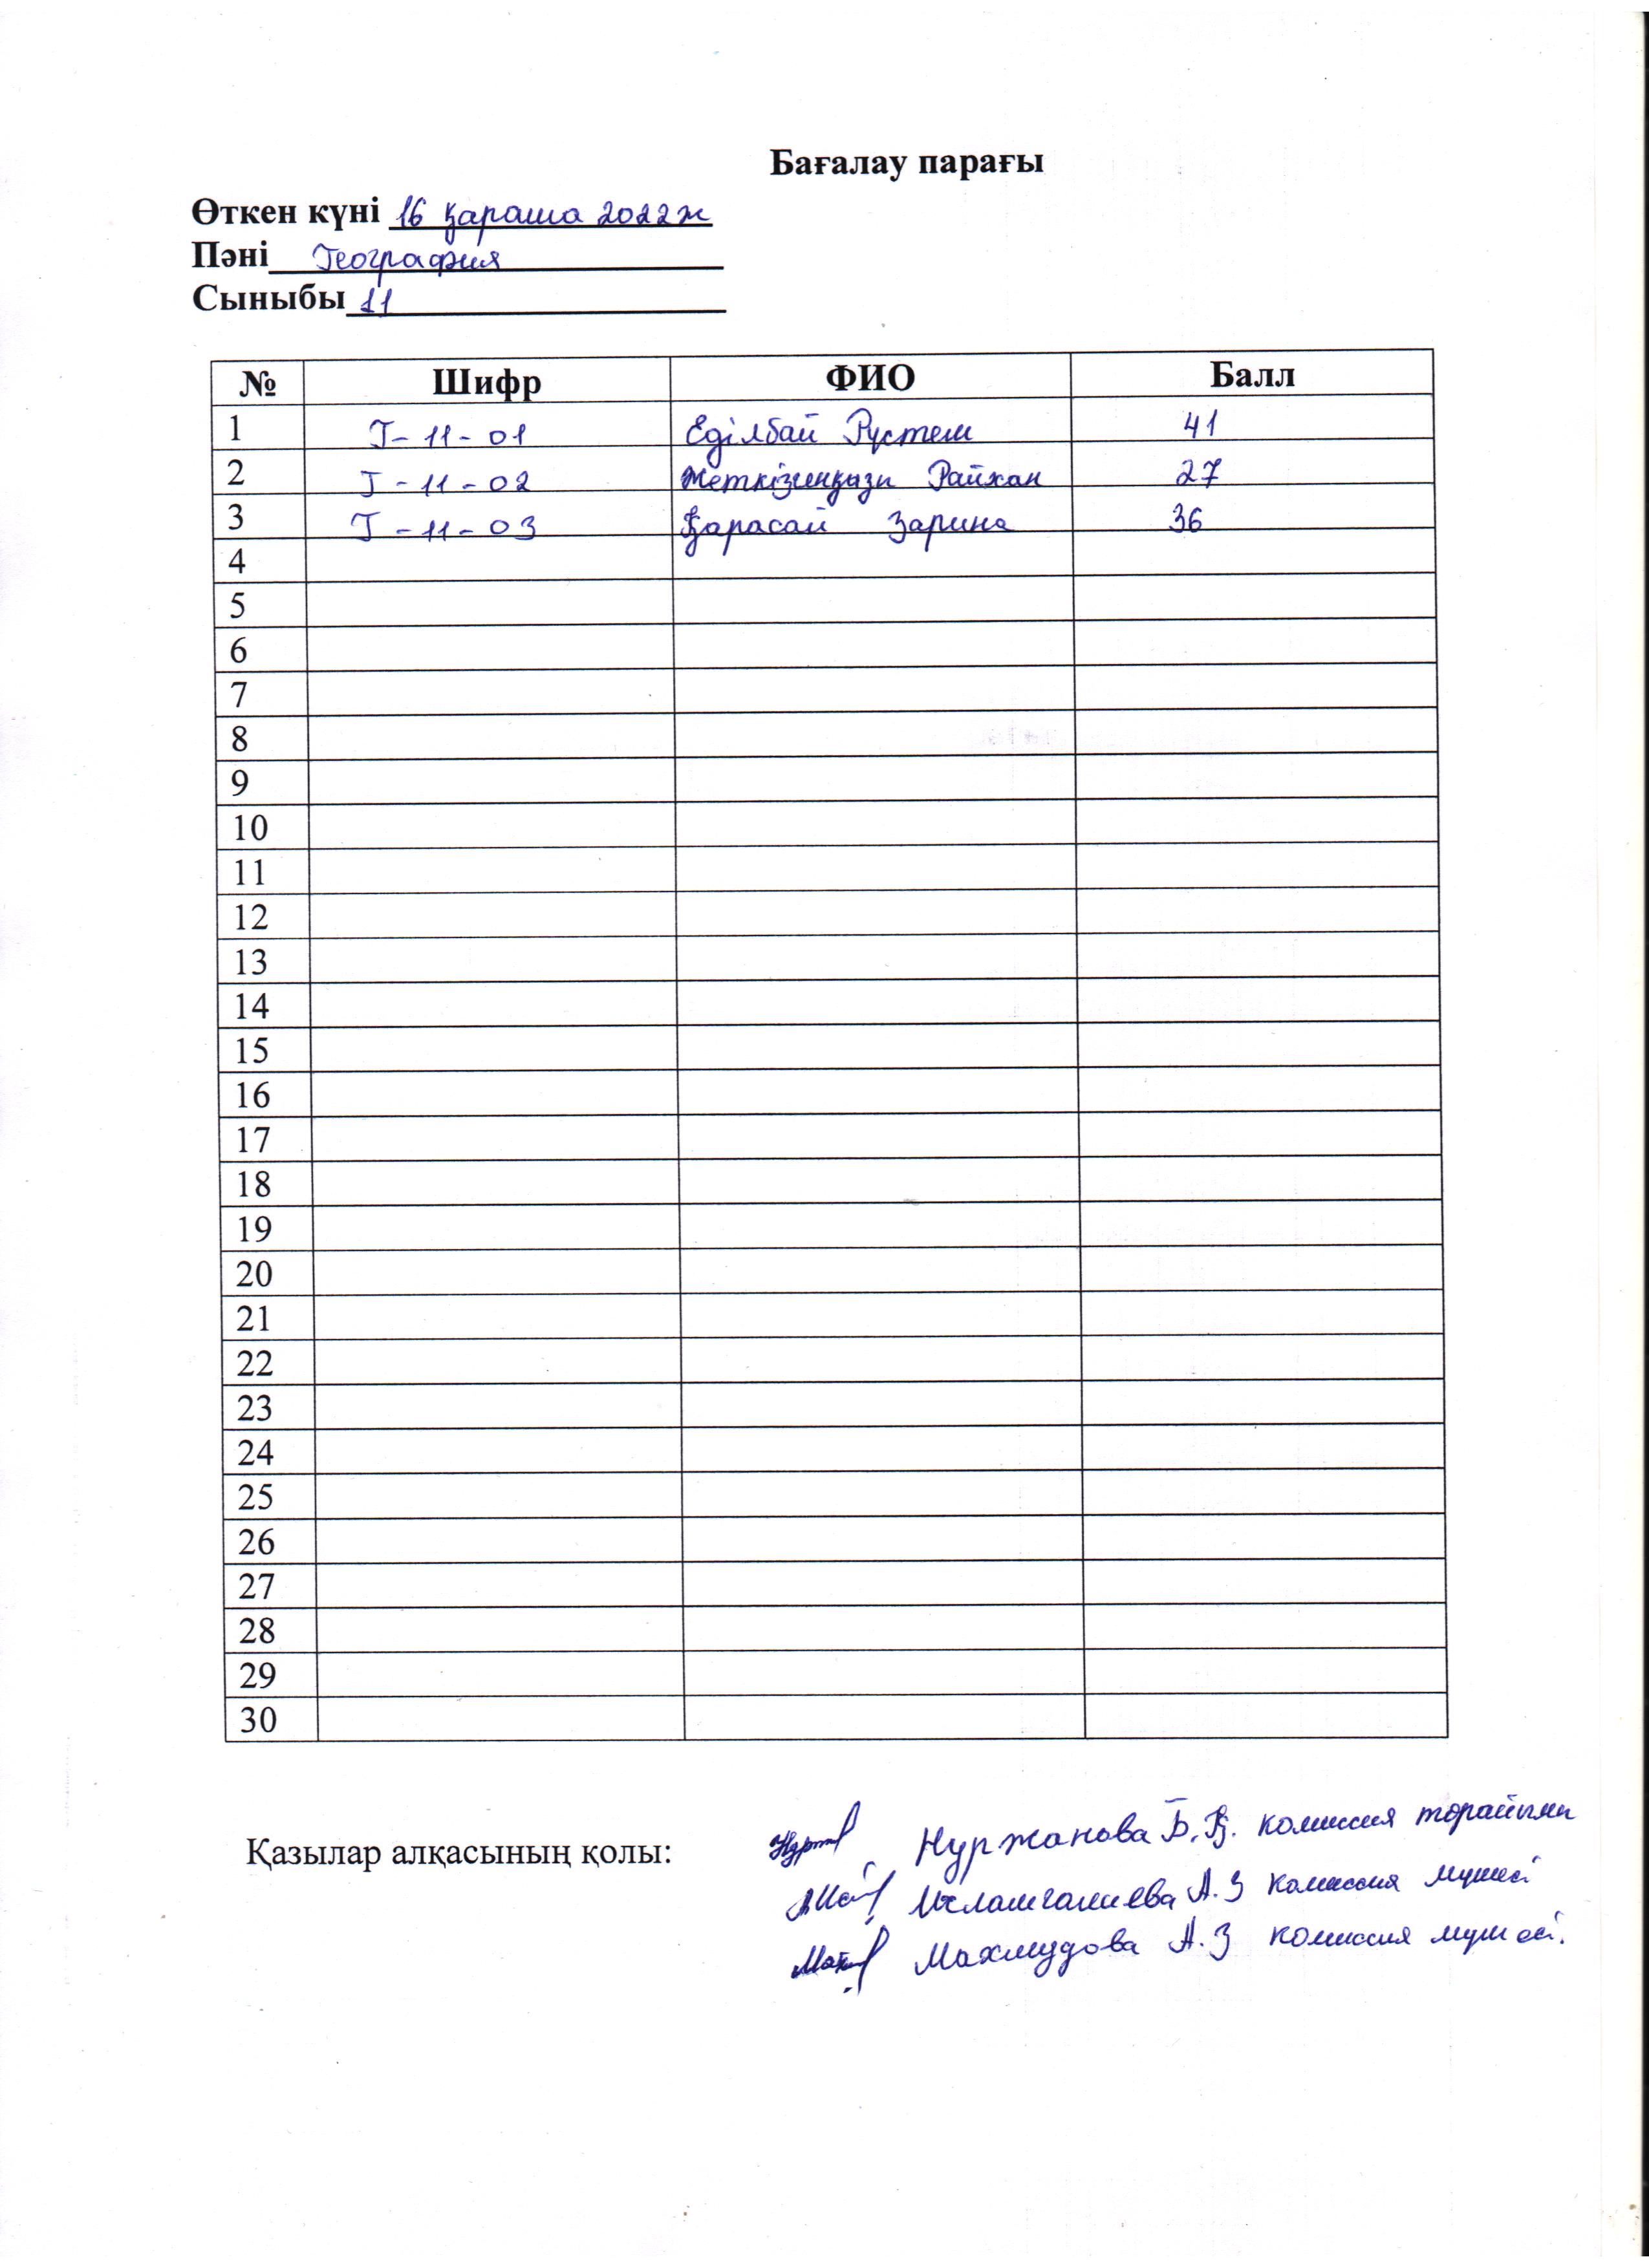 Бағалау парағы
Өткен күні 16 қараша 2022ж
Пәні География
Сыныбы 11
№ Шифр ФИО Балл
1 Г-11-01 Еділбай Рүстем 41
2 Г-11-02 Жеткізгенқызы Райхан 27
3 Г-11-03 Қарасай Зарина 36
4
5
6
7
8
9
10
11
12
13
14
15
16
17
18
19
20
21
22
23
24
25
26
27
28
29
30
Қазылар алқасының қолы: Нуржанова Б.Қ. комиссия төрайымы
Исламгалиева А.З комиссия мүшесі
Махмудова А.З комиссия мүшесі.